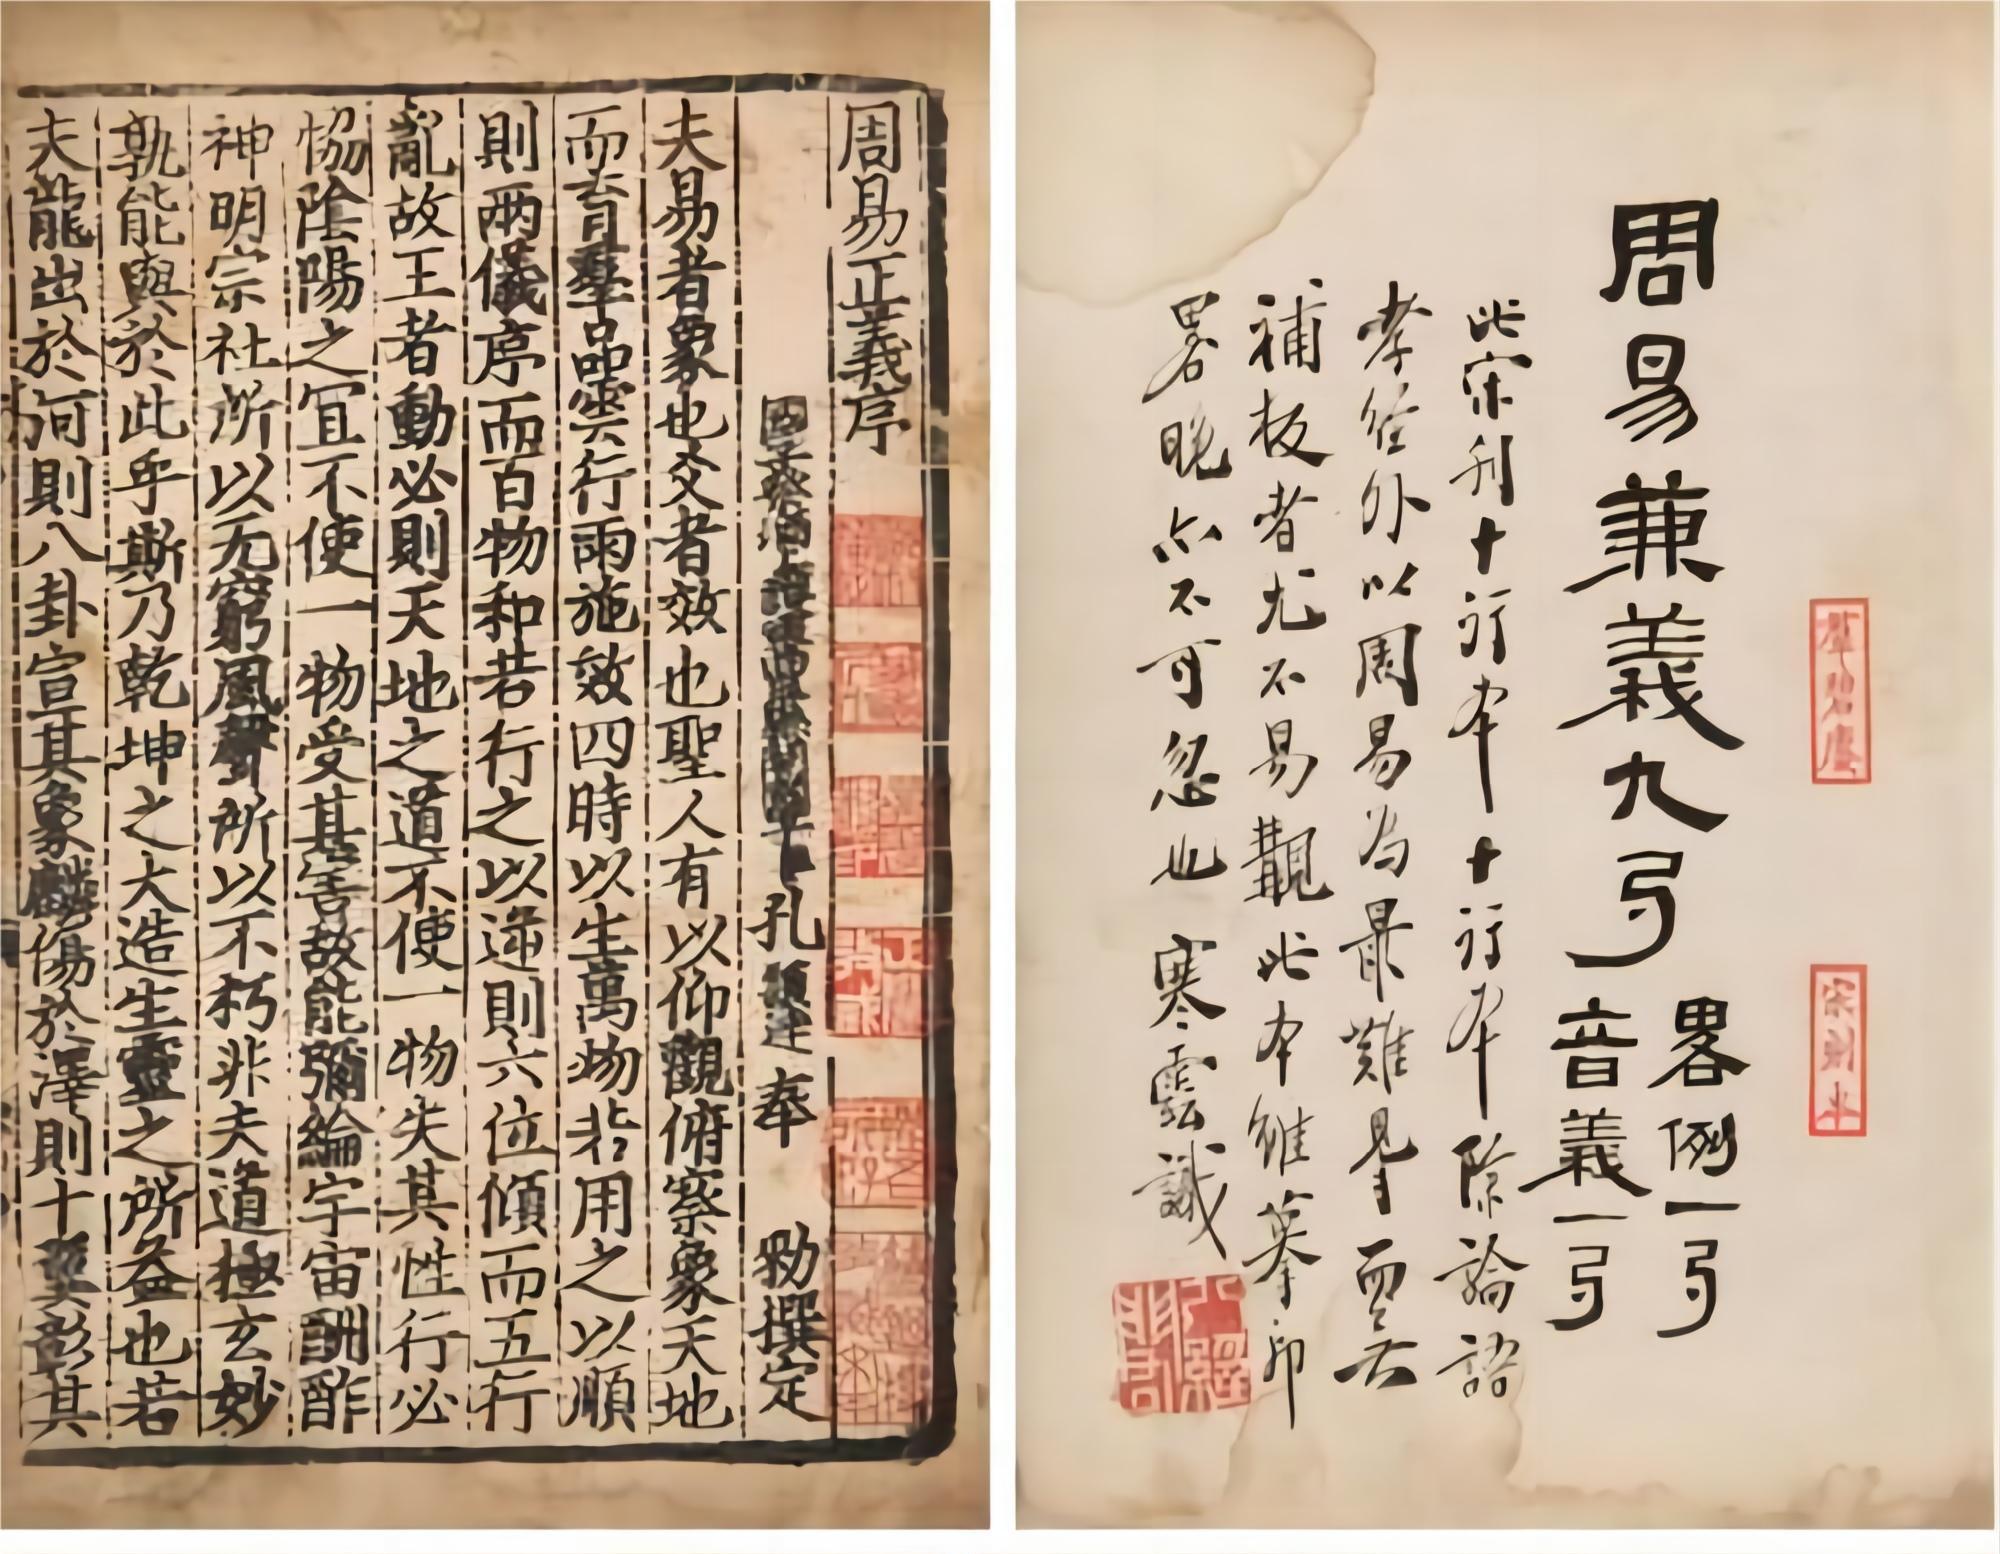 周易兼義九弓
畧例一弓
音義一弓
此宋刊十行本十行本除論語
孝經外以周易為最難見而无
補板者尤不易覯此本雖摹印
畧晚亦不可忽也 寒雲識
周易正義序
國子祭酒上護軍曲阜縣開國子臣孔穎達奉 勑撰定
夫易者象也爻者效也聖人有以仰觀俯察象天地
而育羣品雲行雨施效四時以生萬物若用之以順
則兩儀序而百物和若行之以逆則六位傾而五行
亂故王者動必則天地之道不使一物失其性行必
恊陰陽之冝不使一物受其害故能彌綸宇宙酬酢
神明宗社所以无窮風聲所以不朽非夫道極玄妙
孰能與於此乎斯乃乾坤之大造生靈之所益也若
夫龍出於河則八卦宣其象麟傷於澤則十翼彰其